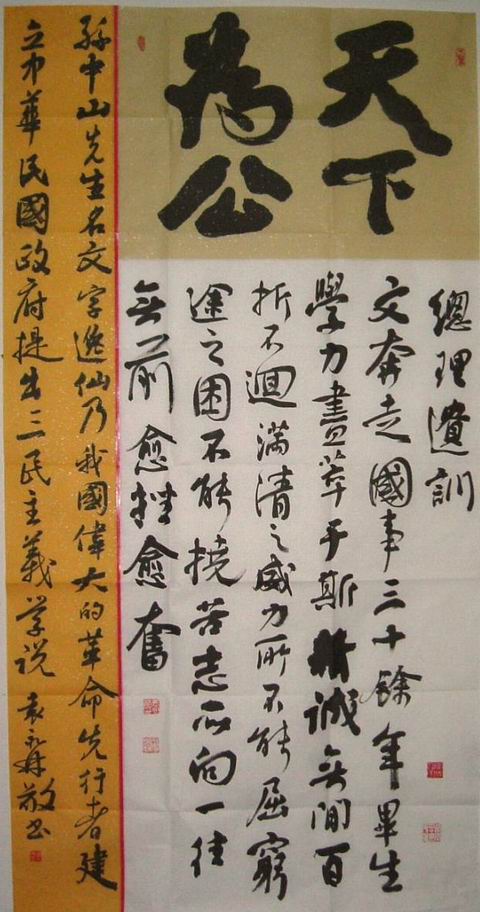 天下
為公
總理遺訓
文奔走國事三十餘年畢生
學力盡萃于斯精誠無間百
折不迴滿清之威力所不能屈窮
途之困不能撓吾志所向一往
無前愈挫愈奮
孫中山先生名文字逸仙乃我國偉大的革命先行者建
立中華民國政府提出三民主義学说 敬书